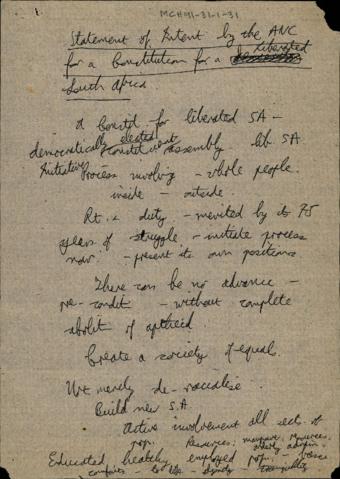 MCH91-31-1-31
Statement of Intent by the ANC
for a Constitution for a Liberated
South Africa
A Constit for liberated SA -
democratically elected Constituent assembly lib. SA
Initiative Process involving - whole people.
inside - outside
Rt. & duty - merited by its 75
years of struggle - initiate process
now. - present its own positions
There can be no advance -
pre-condit - without complete
abolit of aptheid
Create a society of equals.
Not merely de-racialise
Build new S.A.
Active involvement all sect. of
pop. Resources; manpower, resources,
Educated healthy employed pop. -
- to life - dignity